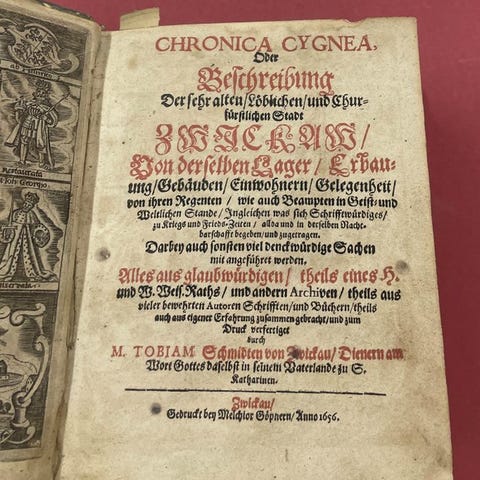 CHRONICA CYGNEA,
Oder
Beschreibung
Der sehr alten/ Löblichen/ und Chur-
fürstlichen Stadt
ZWICKAW/
Von derselben Lager/ Erbau-
ung/ Gebäuden/ Einwohnern/ Gelegenheit/
von ihren Regenten/ wie auch Beampten in Geist- und
Weltlichen Stande/ Ingleichen was sich Schrifftwürdiges/
zu Kriegs und Frieds-Zeiten/ allda und in derselben Nach-
barschafft begeben/ und zugetragen.
Darbey auch sonsten viel denckwürdige Sachen
mit angeführet werden.
Alles aus glaubwürdigen/ theils eines H.
und W. Weis. Raths/ und andern Archiven/ theils aus
vieler bewehrten Autoren Schrifften/ und Büchern/ theils
auch aus eigener Erfahrung zusammen gebracht/ und zum
Druck verfertiget
durch
M. TOBIAM Schmidten von Zwickau/ Dienern am
Wort Gottes daselbst in seinem Vaterlande zu S.
Katharinen.
Zwickau/
Gedruckt bey Melchior Göpnern/ Anno 1656.